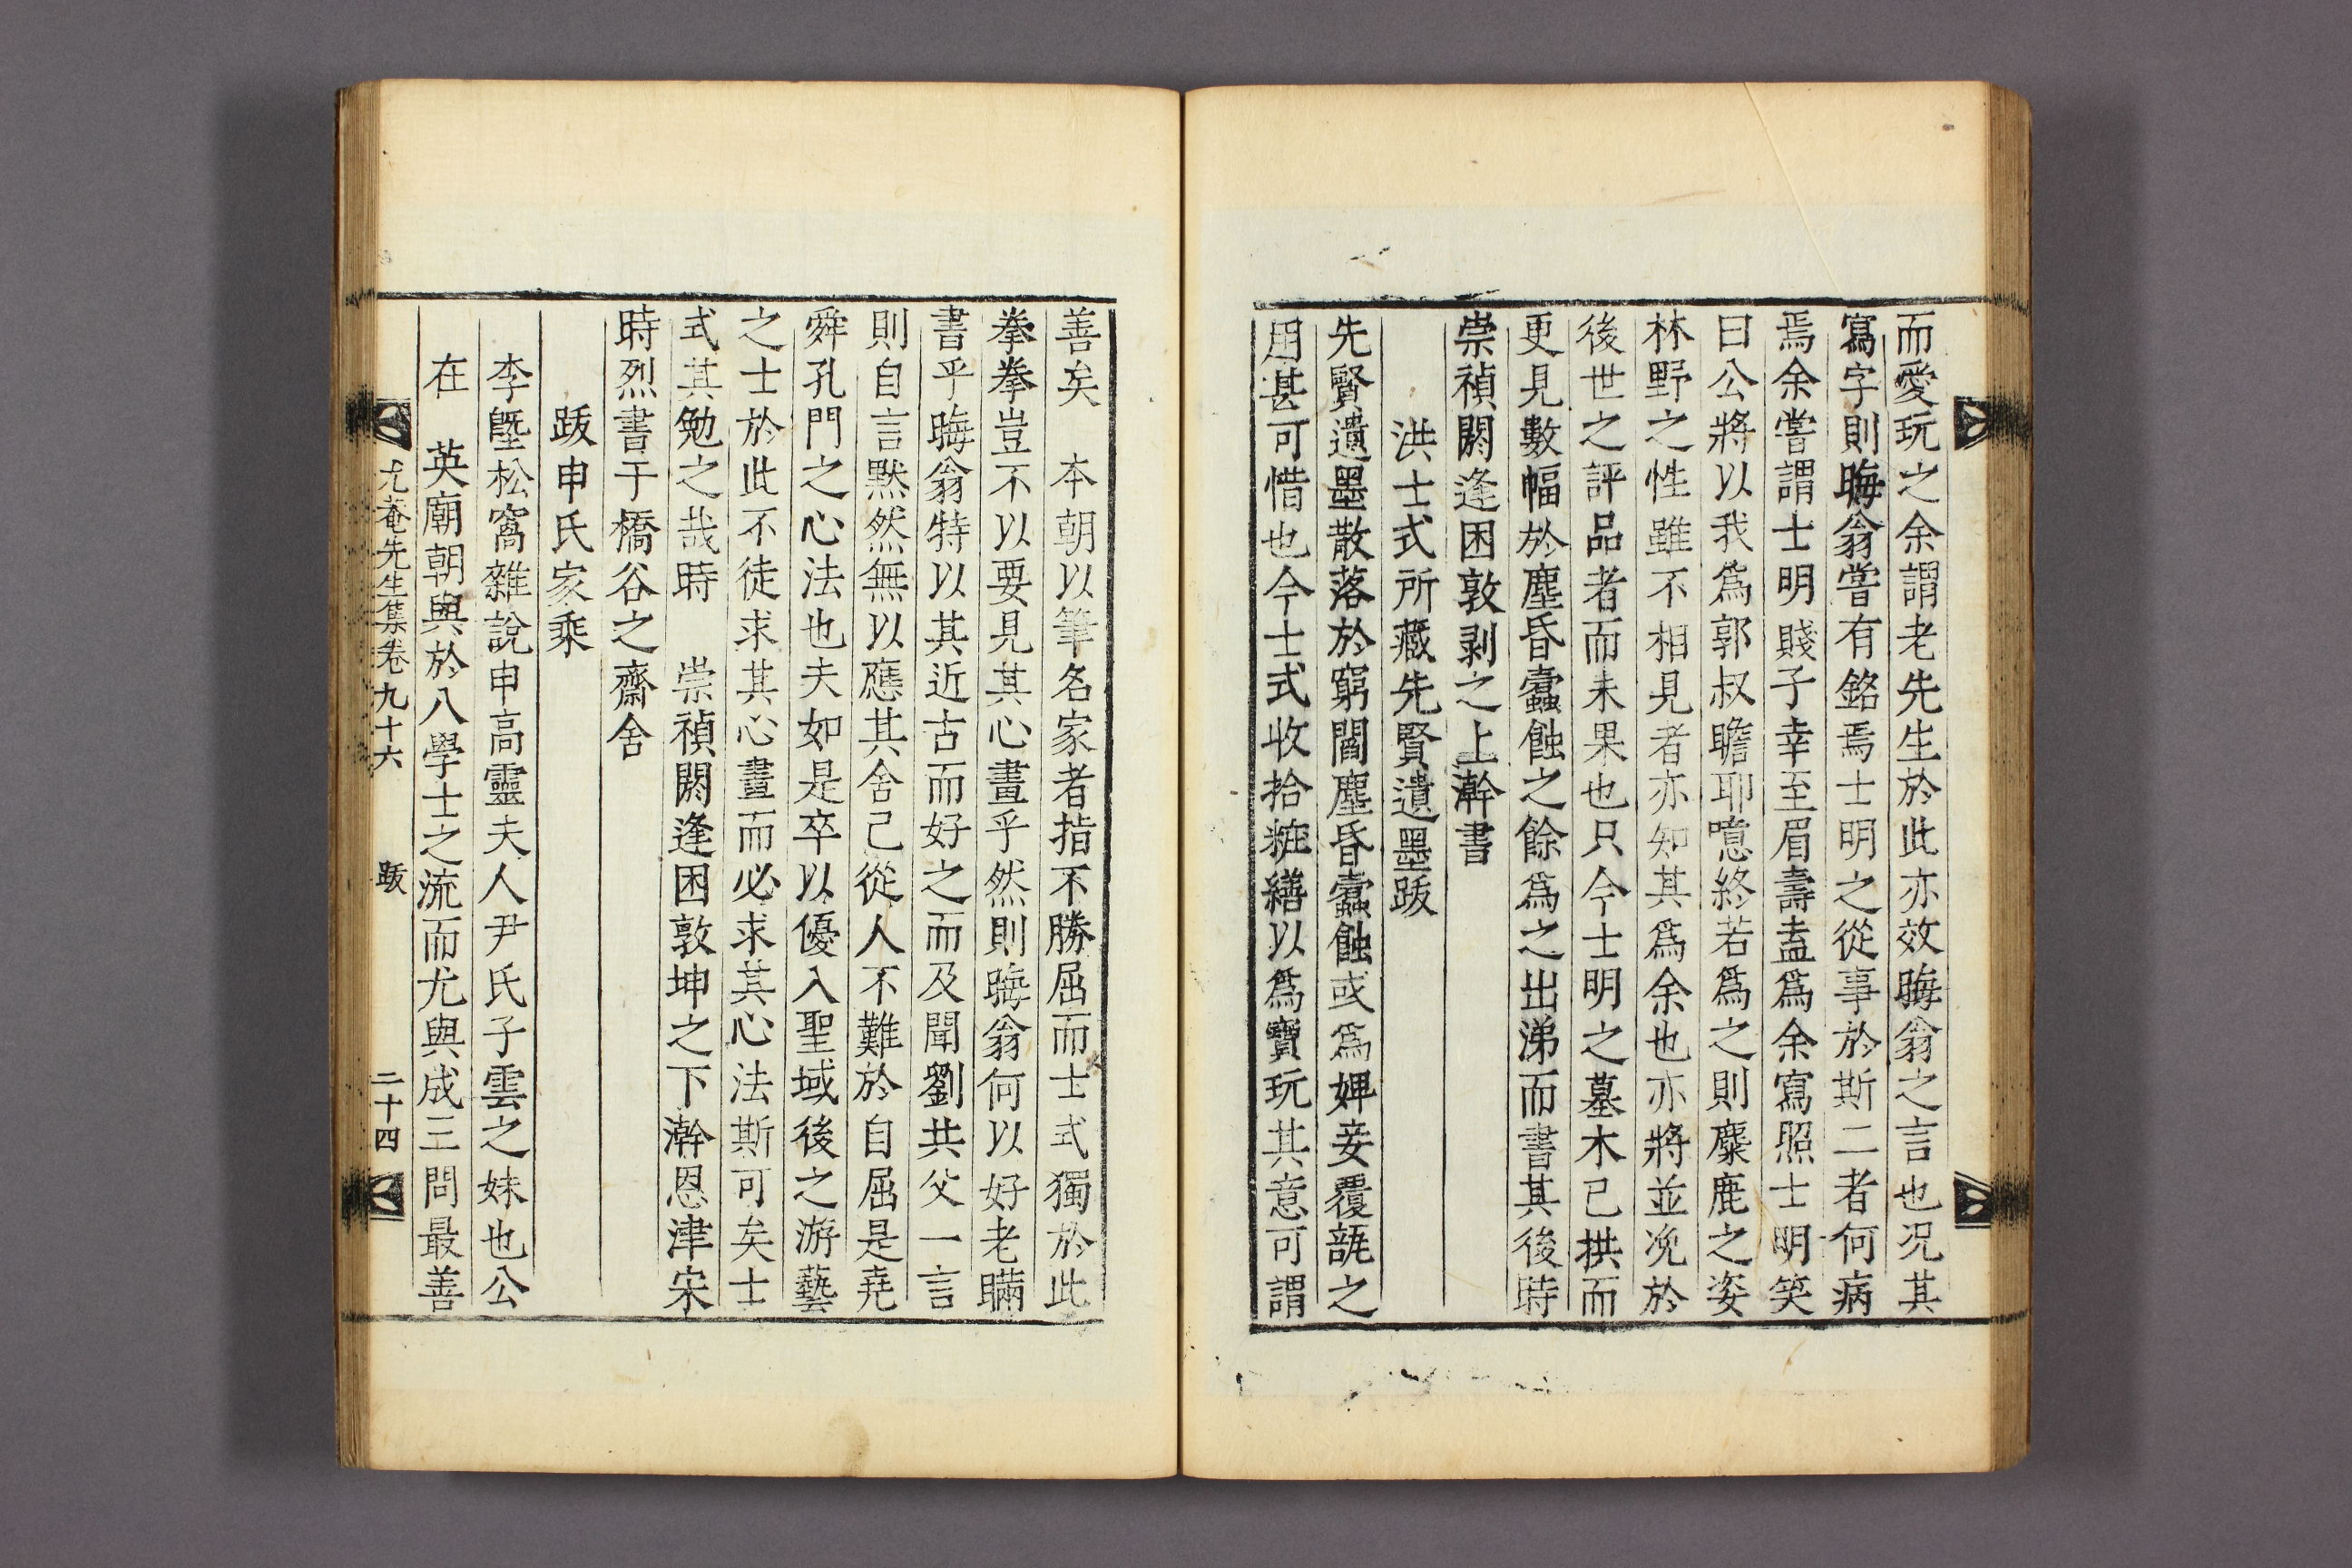 而愛玩之余謂老先生於此亦效晦翁之言也況其
寫字則晦翁嘗有銘焉士明之從事於斯二者何病
焉余嘗謂士明賤子幸至眉壽盍爲余寫照士明笑
曰公將以我爲郭叔瞻耶噫終若爲之則麋鹿之姿
林野之性雖不相見者亦知其爲余也亦將並免於
後世之評品者而未果也只今士明之墓木已拱而
更見數幅於塵昏蠹蝕之餘爲之出涕而書其後時
崇禎閼逢困敦剥之上澣書
洪士式所藏先賢遺墨跋
先賢遺墨散落於窮閻塵昏蠹蝕或爲婢妾覆瓿之
用甚可惜也今士式收拾粧繕以爲寶玩其意可謂
善矣 本朝以筆名家者指不勝屈而士式獨於此
拳拳豈不以要見其心畫乎然則晦翁何以好老瞞
書乎晦翁特以其近古而好之而及聞劉共父一言
則自言默然無以應其舍己從人不難於自屈是堯
舜孔門之心法也夫如是卒以優入聖域後之游藝
之士於此不徒求其心畫而必求其心法斯可矣士
式其勉之哉時 崇禎閼逢困敦坤之下澣恩津宋
時烈書于橋谷之齋舍
跋申氏家乘
李墍松窩雜說申高靈夫人尹氏子雲之妹也公
在 英廟朝與於八學士之流而尤與成三問最善
尤菴先生集卷九十六 跋 二十四